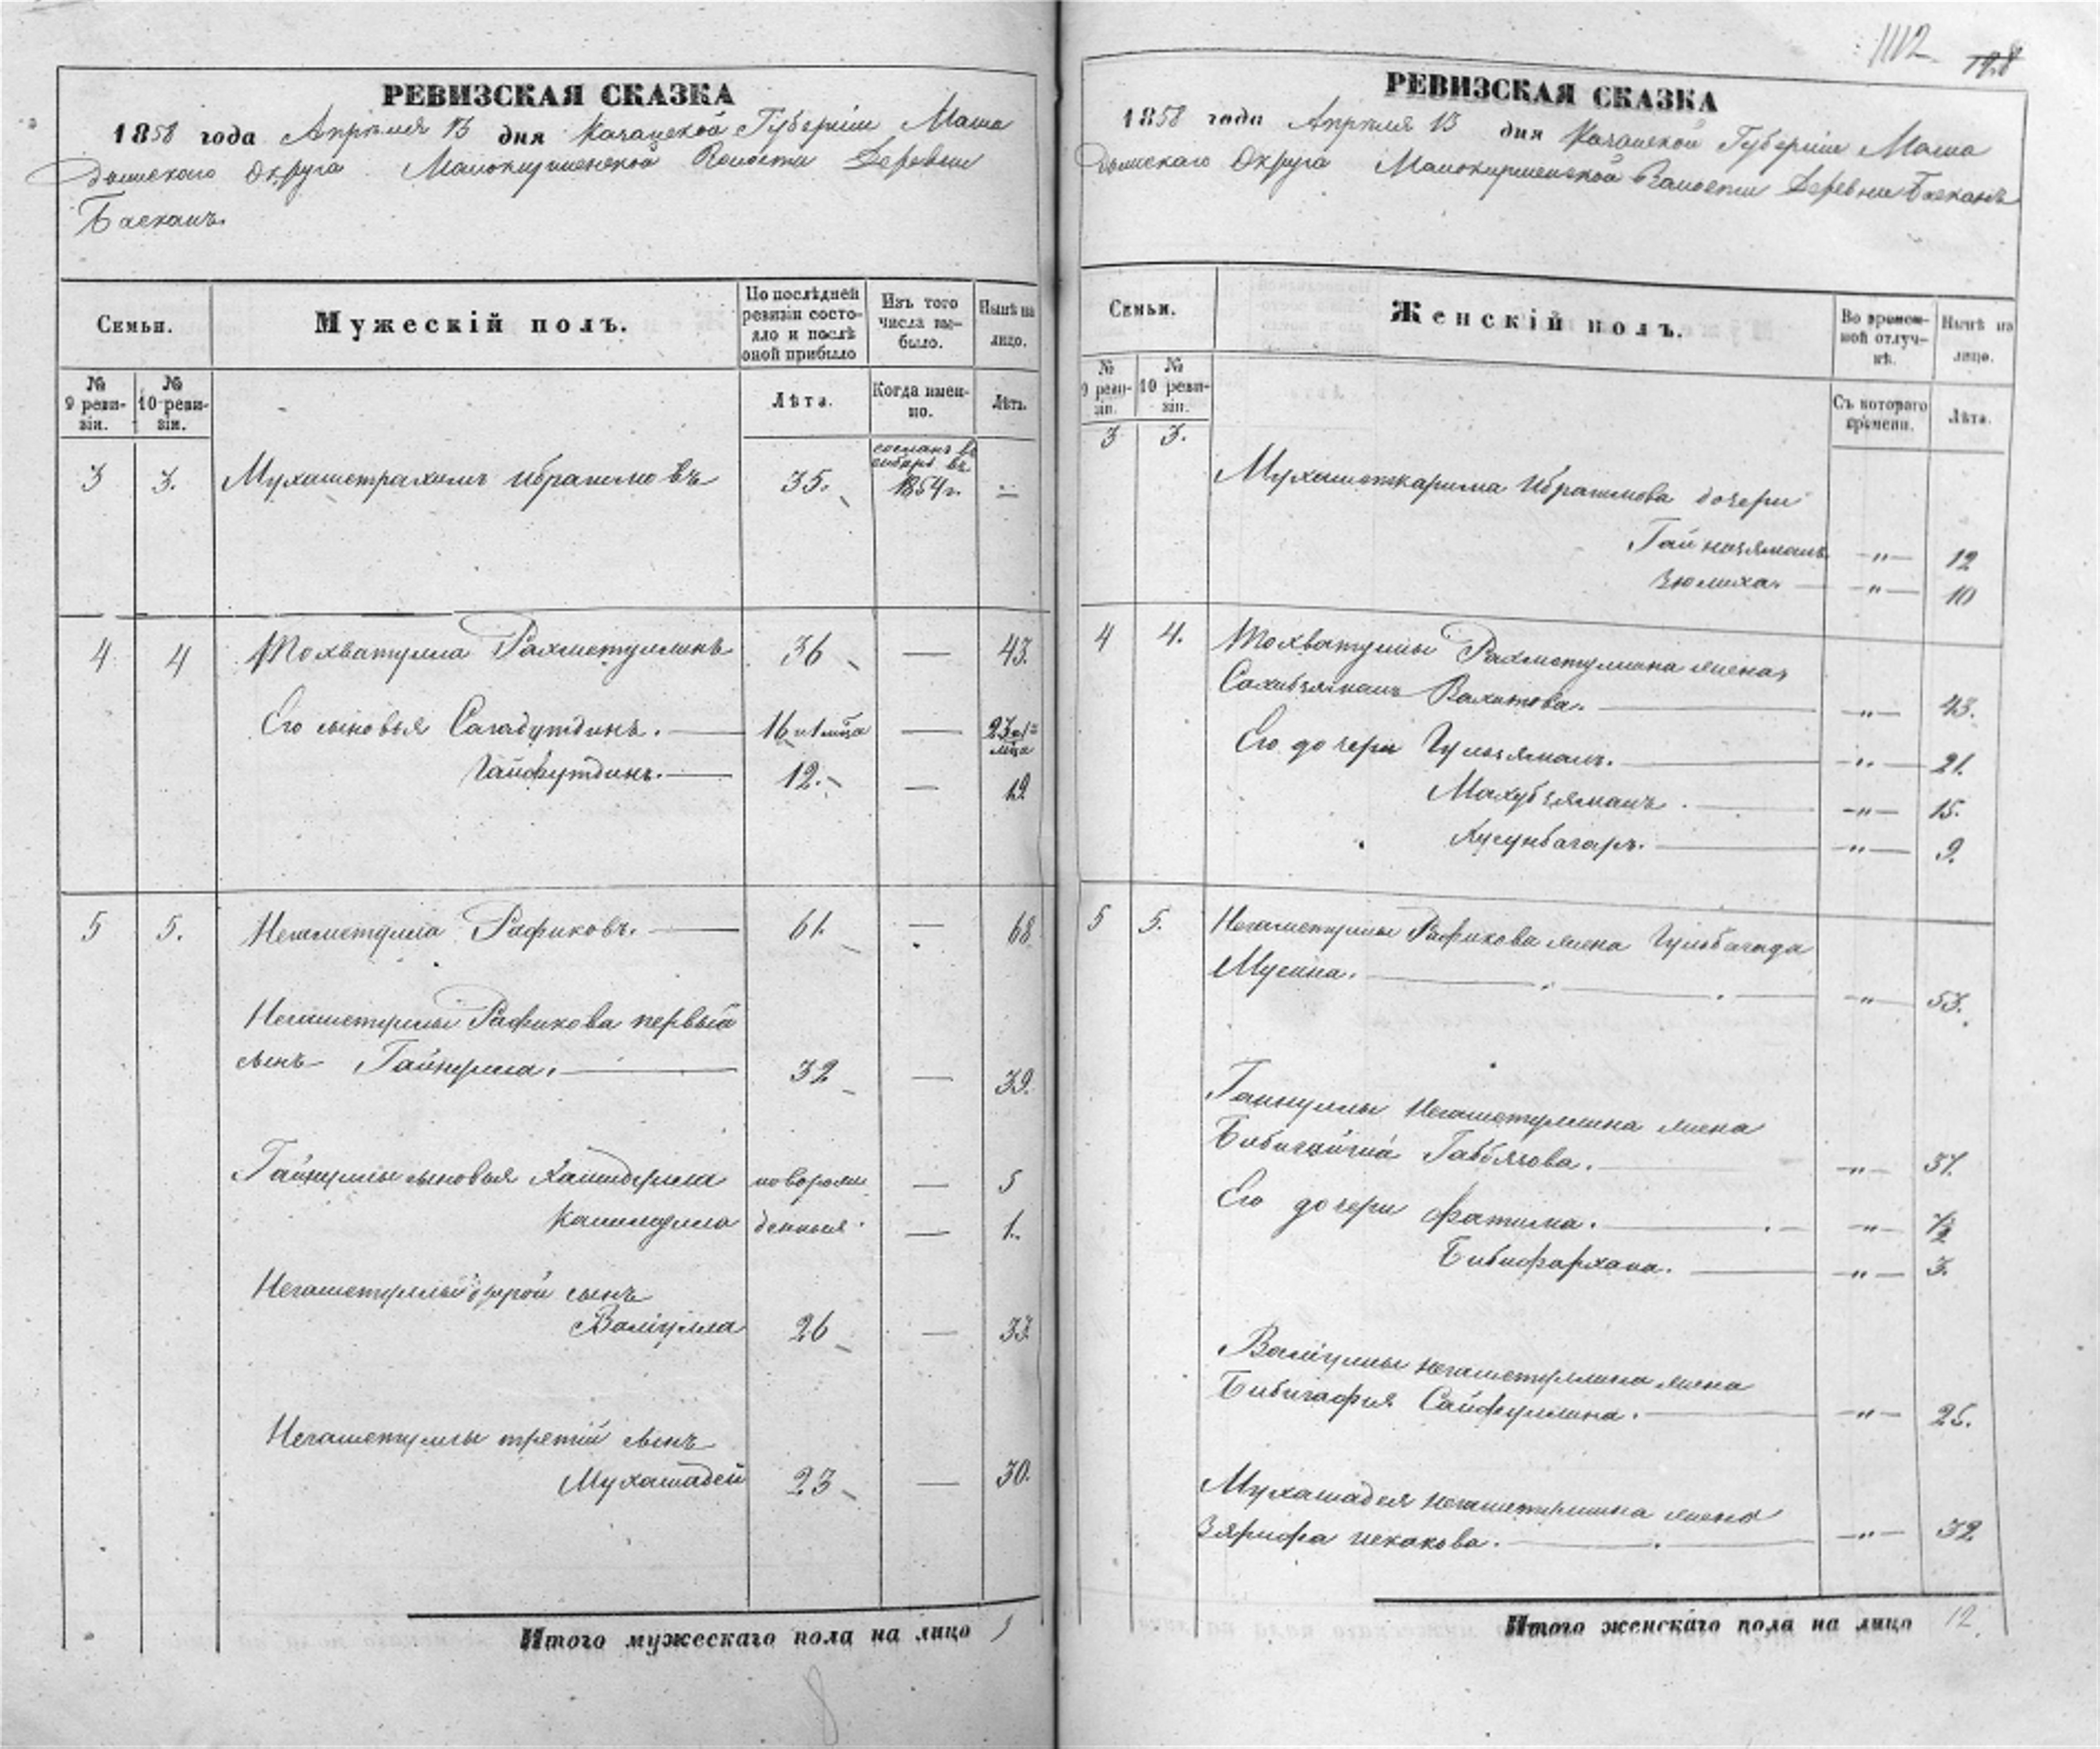 1112 128
РЕВИЗСКАЯ СКАЗКА
1858 года Апрѣля 13 дня Казанской Губерніи Мама
дышскаго Округа Малокирменской Волости Деревни
Басканъ.
Семьи.
Мужескій полъ.
По послѣдней ревизіи состояло и послѣ оной прибыло
Изъ того числа выбыло.
Нынѣ на лицо.
№ 9 ревизіи.
№ 10 ревизіи.
Лѣта.
Когда именно.
Лѣта.
3 3. Мухаметрахимъ Ибрагимовъ 35. сосланъ въ сибирь въ 1854 г. —
4 4 Тохватулла Рахметуллинъ 36 — 43.
Его сыновья Сагадутдинъ. — 16 и 1 мца — 23 и 1 мца
Гайфутдинъ. — 12. — 19
5 5. Негаметулла Рафиковъ. — 61. — 68
Негаметуллы Рафикова первый
сынъ Гайнулла. — 32 — 39.
Гайнуллы сыновья Хамидулла новорож — 5
Калимулла денные — 1.
Негаметуллы второй сынъ
Валіулла 26 — 33.
Негаметуллы третій сынъ
Мухамадей 23 — 30.
Итого мужескаго пола на лицо
8
РЕВИЗСКАЯ СКАЗКА
1858 года Апрѣля 13 дня Казанской Губерніи Мама
дышскаго Округа Малокирменской Волости Деревни Басканъ
Семьи.
Женскій полъ.
Во временной отлучкѣ.
Нынѣ на лицо.
№ 9 ревизіи.
№ 10 ревизіи.
Съ котораго времени.
Лѣта.
3 3.
Мухаметкарима Ибрагимова дочери
Гайнизямалъ — „ — 12
Зюлиха. — „ — 10
4 4. Тохватуллы Рахметуллина жена
Сахибзямалъ Вахитова. — „ — 43.
Его дочери Гульзямалъ. — „ — 21.
Махубзямалъ. — „ — 15.
Хусунбагаръ. — „ — 9.
5 5. Негаметуллы Рафикова жена Гульбагида
Мусина. — „ — 53.
Гайнуллы Негаметуллина жена
Бибигайша Габбясова. — „ — 37.
Его дочери Фатима. — „ — 1/2
Бибифархана. — „ — 3.
Валіуллы Негаметуллина жена
Бибигафия Сайфуллина. — „ — 25.
Мухамадея Негаметуллина жена
Зярифа Искакова. — „ — 32
Итого женскаго пола на лицо 12.